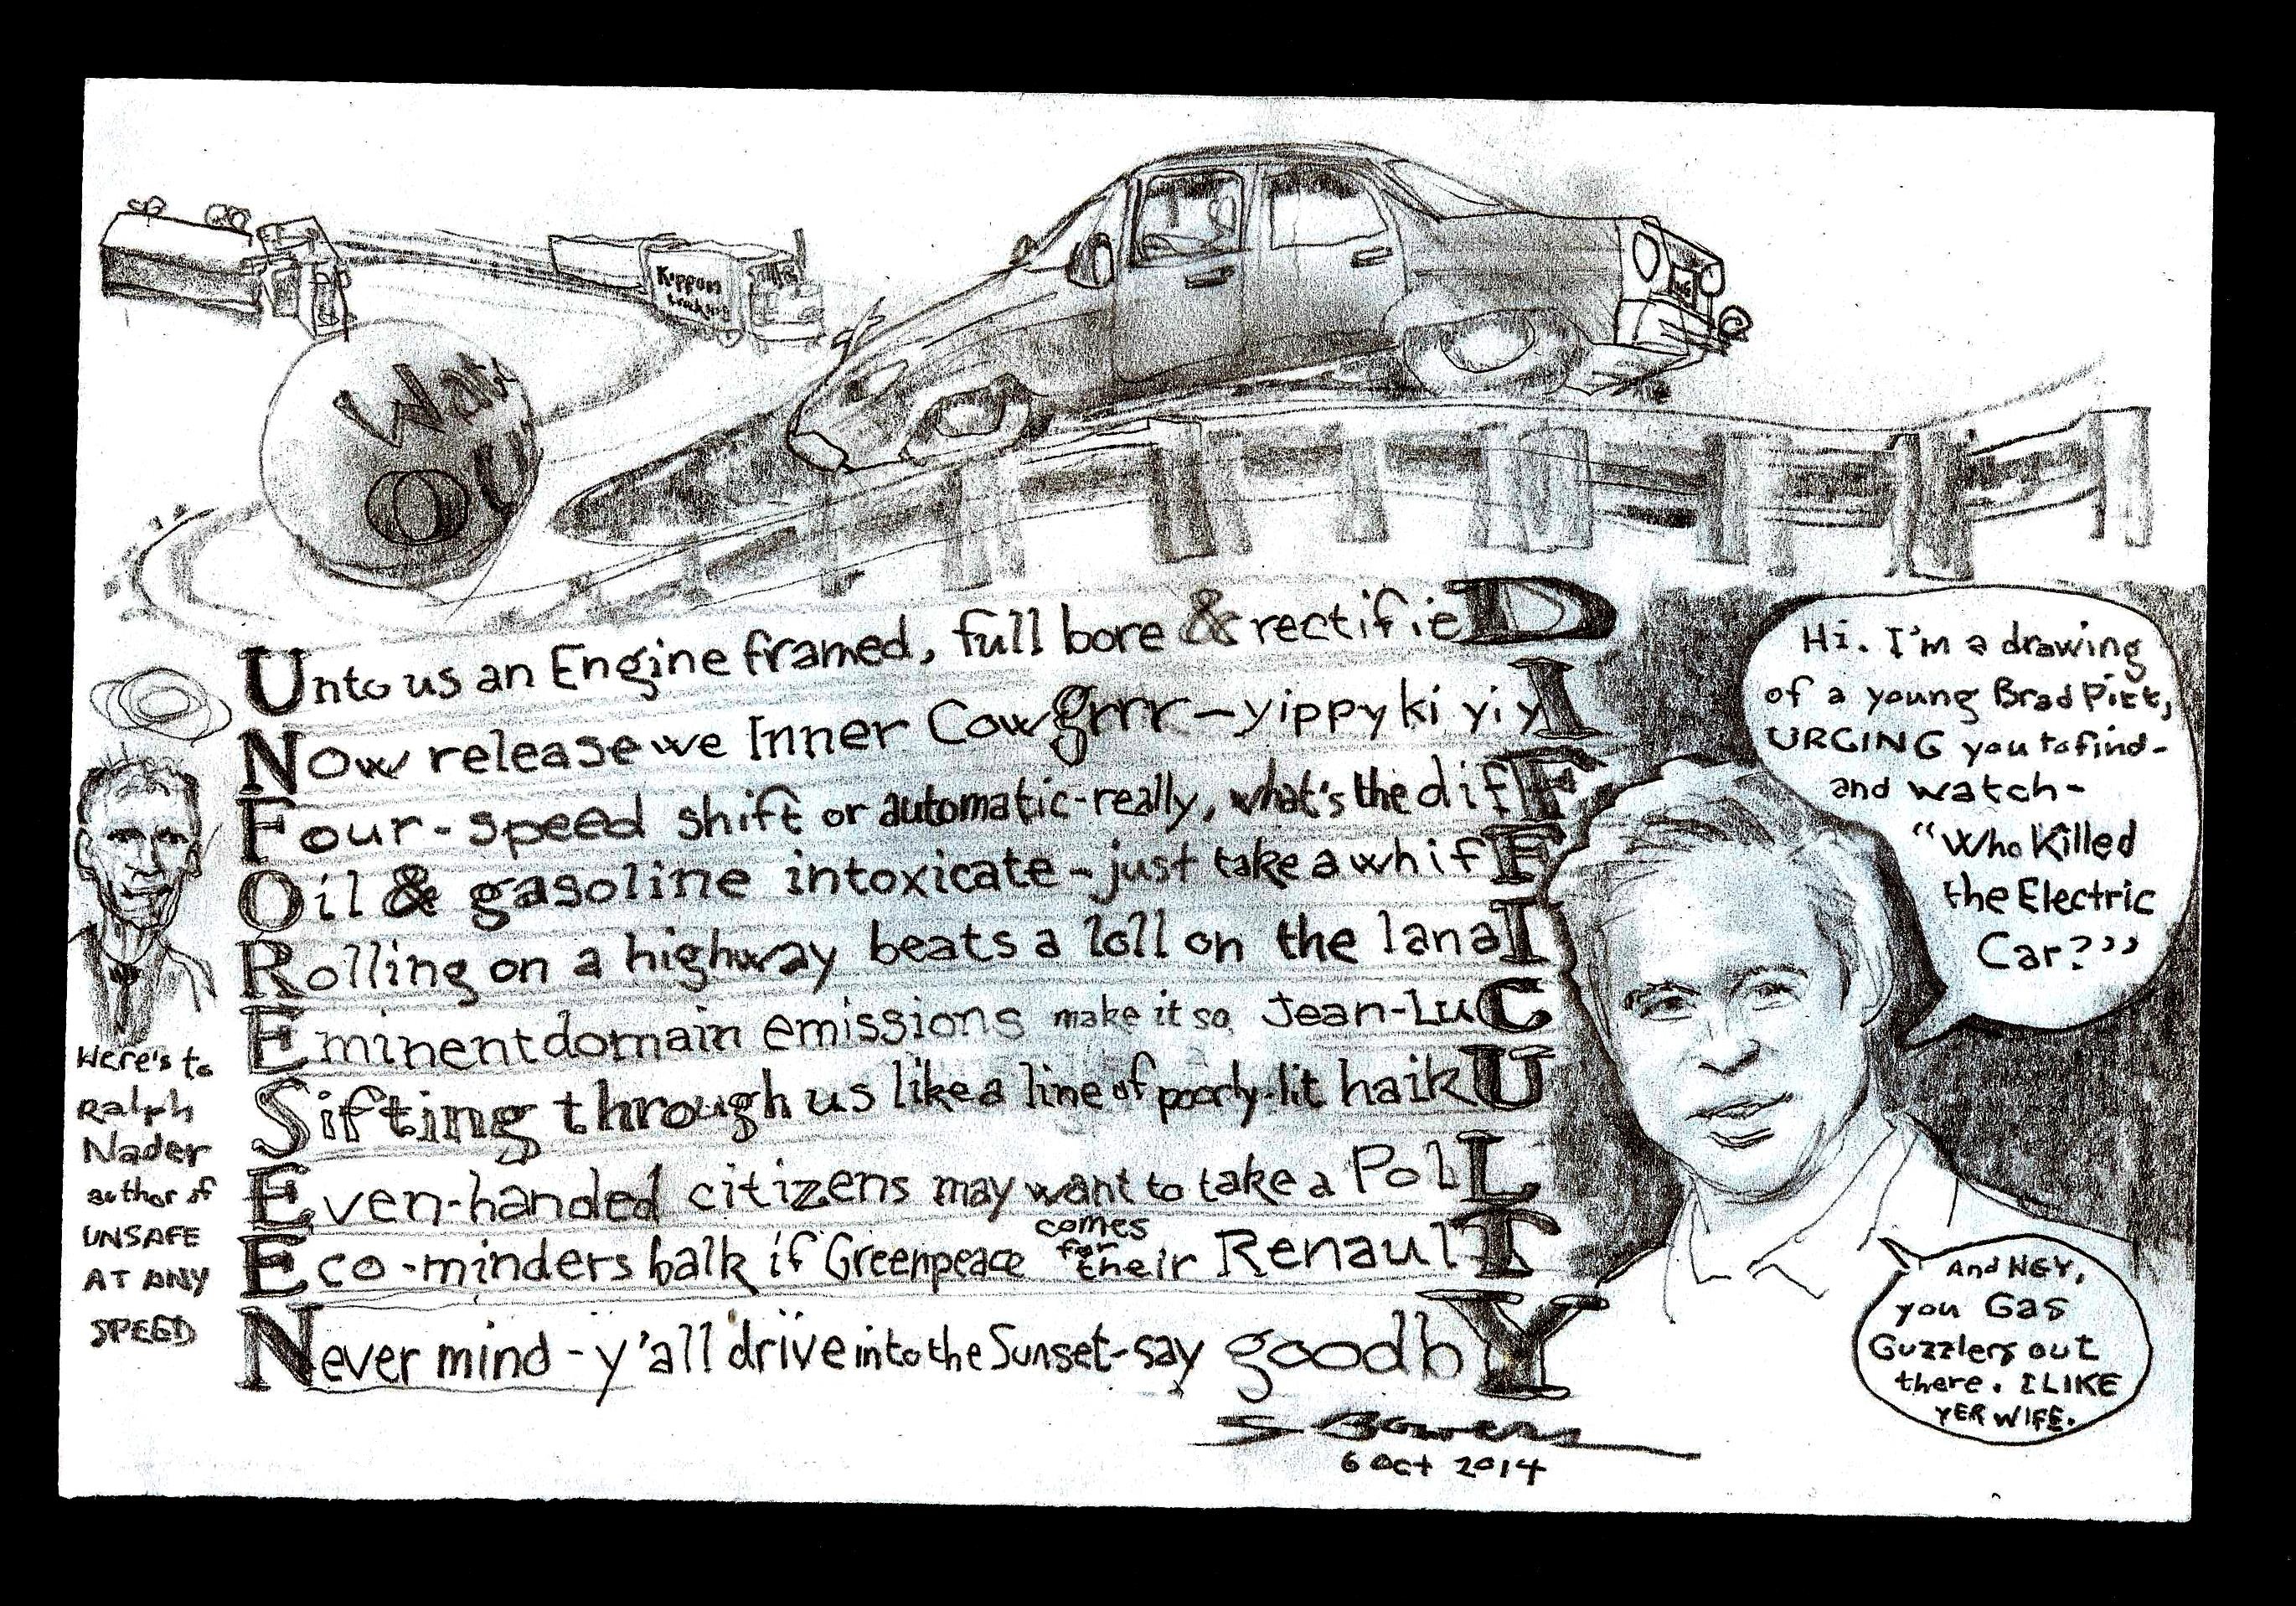 WATCH
OUT
trucking
Unto us an Engine framed, full bore & rectifieD
Now release we Inner Cowgrrr – yippy ki yi yI
Four-speed shift or automatic-really, what's the difF
Oil & gasoline intoxicate - just take a whifF
Rolling on a highway beats a loll on the lanaI
Eminent domain emissions make it so Jean-LuC
Sifting through us like a line of poorly-lit haikU
Even-handed citizens may want to take a PolL
Eco-minders balk if Greenpeace comes for their RenaulT
Never mind - y'all drive into the Sunset-say goodbY
S Bowers
6 Oct 2014
Here's to
Ralph
Nader
author of
UNSAFE
AT ANY
SPEED
Hi. I'm a drawing
of a young Brad Pitt,
URGING you to find-
and watch-
"Who Killed
the Electric
Car?"
And HEY,
you Gas
Guzzlers out
there. I LIKE
YER WIFE.